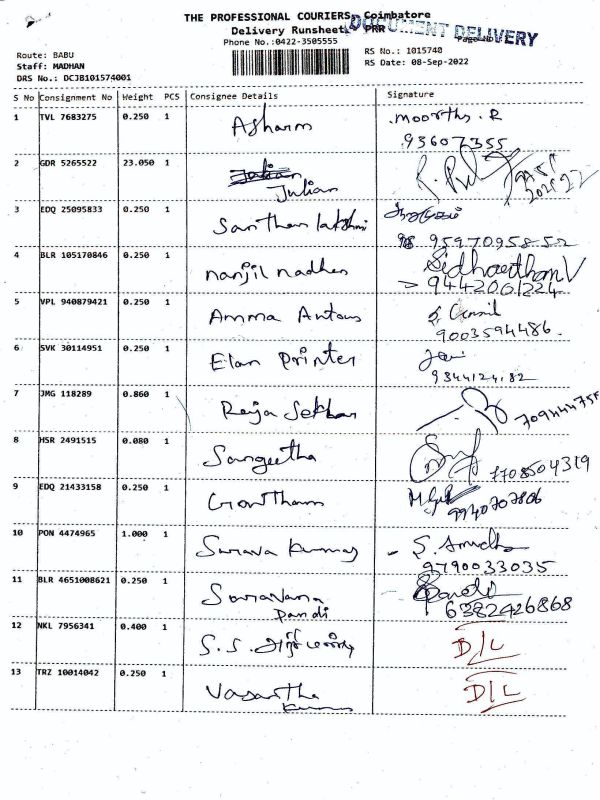 THE PROFESSIONAL COURIERS, Coimbatore
Delivery Runsheet, PRR
DOCUMENT DELIVERY
Phone No.:0422-3505555
Route: BABU
Staff: MADHAN
DRS No.: DCJB101574001
RS No.: 1015740
RS Date: 08-Sep-2022
S No Consignment No Weight PCS Consignee Details Signature
1 TVL 7683275 0.250 1 Asharm Moorthy. R
93607355
2 GDR 5265522 23.050 1 Julian
3 EDQ 25095833 0.250 1 Santhan lakshmi
9597095852
4 BLR 105170846 0.250 1 nanjil nadhen Sidhaertham V
9442001224
5 VPL 940879421 0.250 1 Amma Antons
9003594486.
6 SVK 30114951 0.250 1 Elan Printer
7 JMG 118289 0.860 1 Raja Sekhar
8 HSR 2491515 0.080 1 Sangeetha
7708504319
9 EDQ 21433158 0.250 1 Gowtham
9940707806
10 PON 4474965 1.000 1 Surava Kumar S. Amudha
9790033035
11 BLR 4651008621 0.250 1 Saravana
Pandi
6382426868
12 NKL 7956341 0.400 1 S. S. D/L
13 TRZ 10014042 0.250 1 Vasantha
Kumar D/L